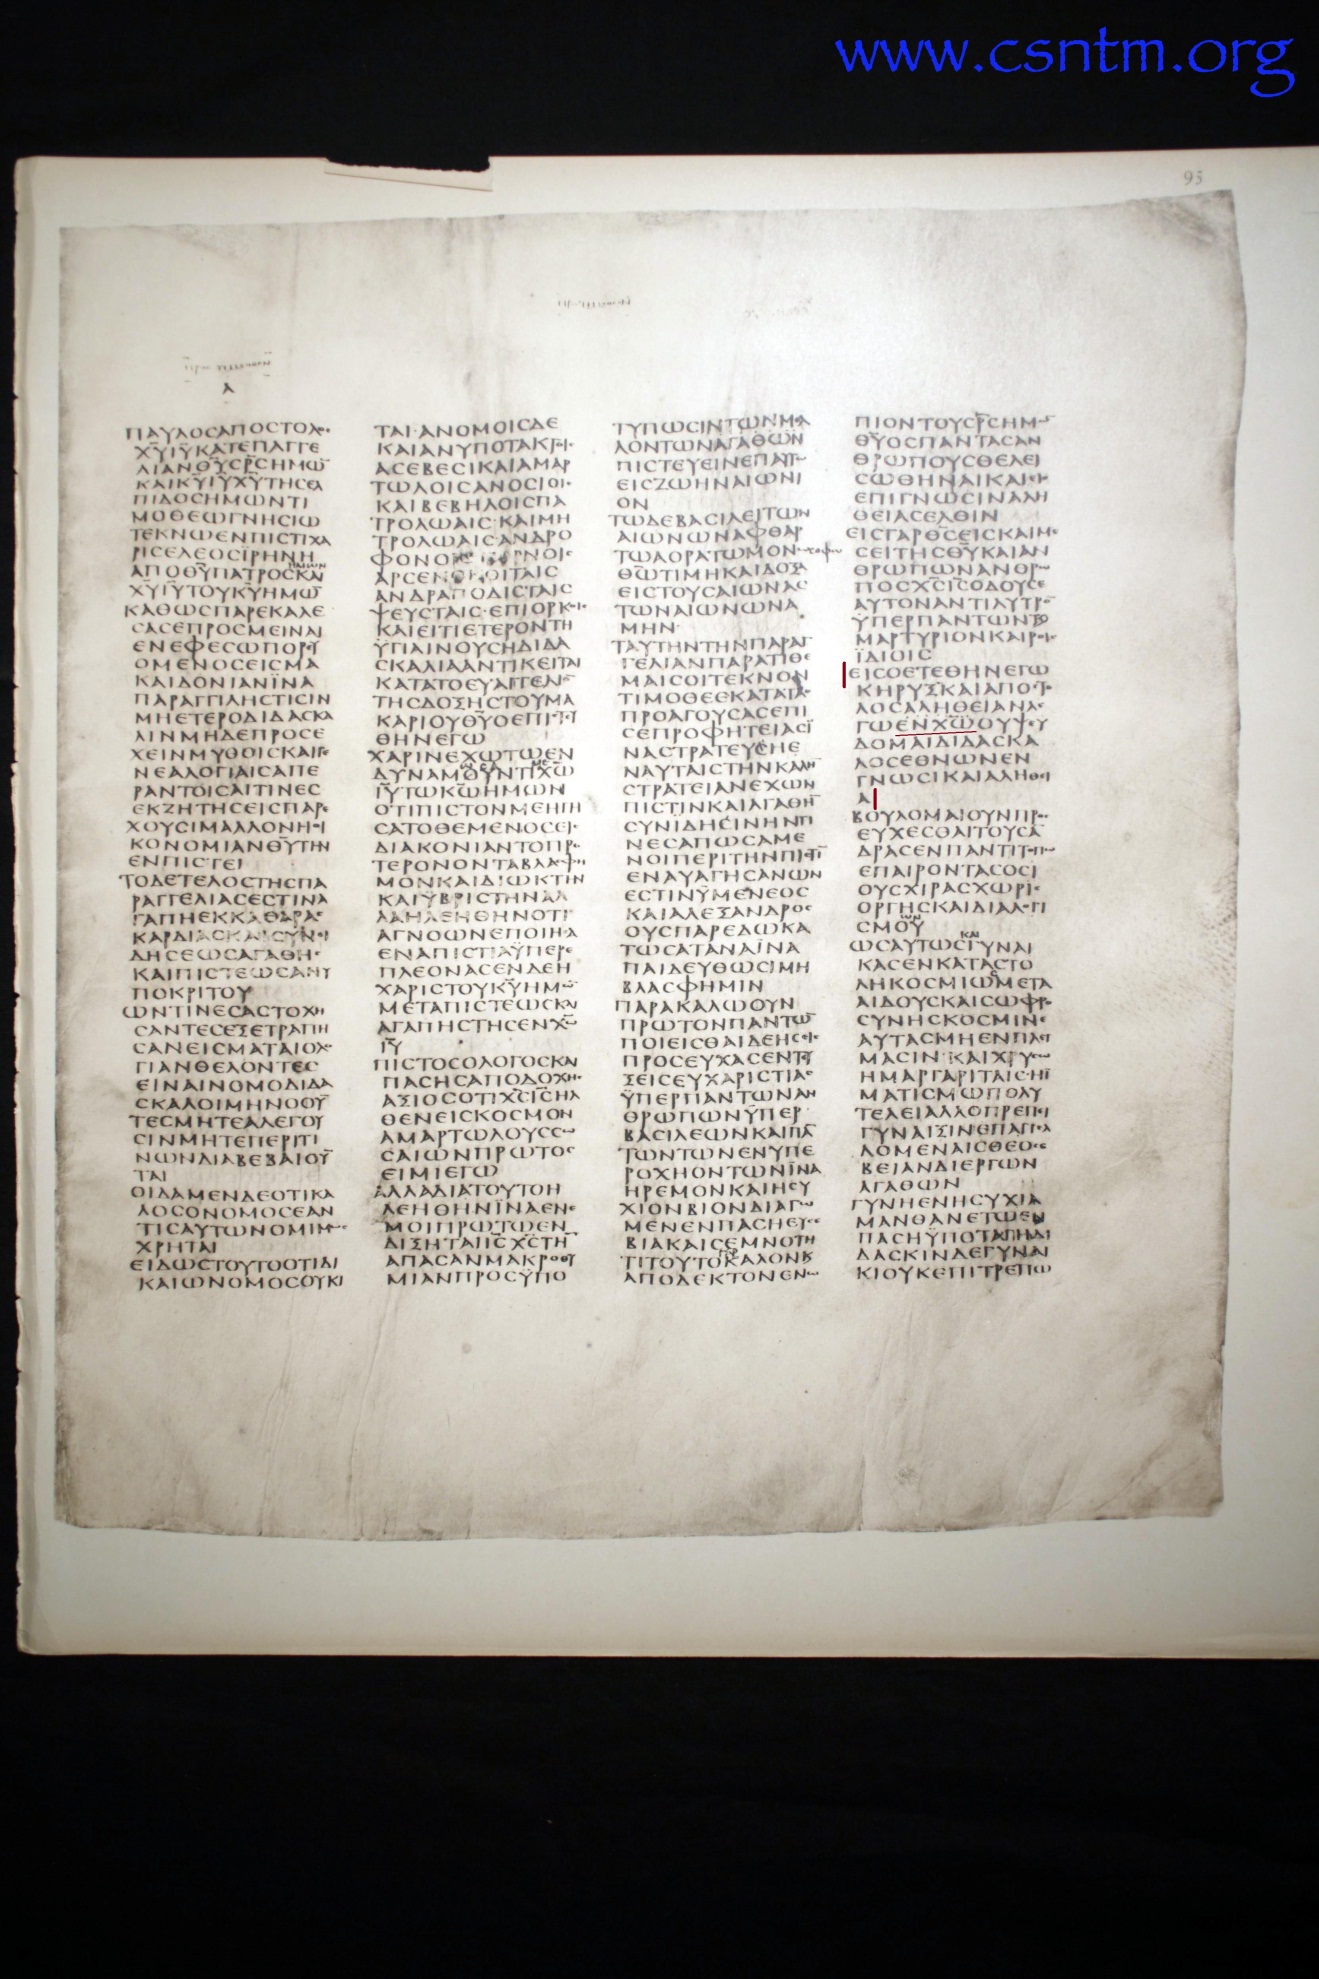 www.csntm.org
95
Α
ΠΑΥΛΟϹΑΠΟϹΤΟΛΟϹ
Χ̅Υ̅Ι̅Υ̅ΚΑΤΕΠΑΓΓΕ
ΛΙΑΝΘ̅Υ̅Ϲ̅Ρ̅Ϲ̅ΗΜΩ̅
ΚΑΙΚ̅Υ̅Ι̅Υ̅Χ̅Υ̅ΤΗϹΕΛ
ΠΙΔΟϹΗΜΩΝΤΙ
ΜΟΘΕΩΓΝΗϹΙΩ
ΤΕΚΝΩΕΝΠΙϹΤΙΧΑ
ΡΙϹΕΛΕΟϹΪΡΗΝΗ
ΑΠΟΘ̅Υ̅ΠΑΤΡΟϹΚΑΙ
Χ̅Υ̅Ι̅Υ̅ΤΟΥΚ̅Υ̅ΗΜΩ̅
ΚΑΘΩϹΠΑΡΕΚΑΛΕ
ϹΑϹΕΠΡΟϹΜΕΙΝΑΙ
ΕΝΕΦΕϹΩΠΟΡΕΥ
ΟΜΕΝΟϹΕΙϹΜΑ
ΚΑΙΔΟΝΙΑΝΪΝΑ
ΠΑΡΑΓΓΙΛΗϹΤΙϹΙΝ
ΜΗΕΤΕΡΟΔΙΔΑϹΚΑ
ΛΙΝΜΗΔΕΠΡΟϹΕ
ΧΕΙΝΜΥΘΟΙϹΚΑΙΓΕ
ΝΕΑΛΟΓΙΑΙϹΑΠΕ
ΡΑΝΤΟΙϹΑΙΤΙΝΕϹ
ΕΚΖΗΤΗϹΕΙϹΠΑΡΕ
ΧΟΥϹΙΜΑΛΛΟΝΗΟΙ
ΚΟΝΟΜΙΑΝΘ̅Υ̅ΤΗΝ
ΕΝΠΙϹΤΕΙ
ΤΟΔΕΤΕΛΟϹΤΗϹΠΑ
ΡΑΓΓΕΛΙΑϹΕϹΤΙΝΑ
ΓΑΠΗΕΚΚΑΘΑΡΑϹ
ΚΑΡΔΙΑϹΚΑΙϹΥΝΕΙ
ΔΗϹΕΩϹΑΓΑΘΗϹ
ΚΑΙΠΙϹΤΕΩϹΑΝΥ
ΠΟΚΡΙΤΟΥ
ΩΝΤΙΝΕϹΑϹΤΟΧΗ
ϹΑΝΤΕϹΕΞΕΤΡΑΠΗ
ϹΑΝΕΙϹΜΑΤΑΙΟΛΟ
ΓΙΑΝΘΕΛΟΝΤΕϹ
ΕΙΝΑΙΝΟΜΟΔΙΔΑ
ϹΚΑΛΟΙΜΗΝΟΟΥ̅
ΤΕϹΜΗΤΕΑΛΕΓΟΥ
ϹΙΝΜΗΤΕΠΕΡΙΤΙ
ΝΩΝΔΙΑΒΕΒΑΙΟΥ̅
ΤΑΙ
ΟΙΔΑΜΕΝΔΕΟΤΙΚΑ
ΛΟϹΟΝΟΜΟϹΕΑΝ
ΤΙϹΑΥΤΩΝΟΜΙΜΩϹ
ΧΡΗΤΑΙ
ΕΙΔΩϹΤΟΥΤΟΟΤΙΔΙ
ΚΑΙΩΝΟΜΟϹΟΥΚΙ
ΤΑΙ·ΑΝΟΜΟΙϹΔΕ
ΚΑΙΑΝΥΠΟΤΑΚΤΟΙϹ
ΑϹΕΒΕϹΙΚΑΙΑΜΑΡ
ΤΩΛΟΙϹΑΝΟϹΙΟΙϹ
ΚΑΙΒΕΒΗΛΟΙϹΠΑ
ΤΡΟΛΩΑΙϹ·ΚΑΙΜΗ
ΤΡΟΛΩΑΙϹΑΝΔΡΟ
ΦΟΝΟΙϹΠΟΡΝΟΙϹ
ΑΡϹΕΝΟΚΟΙΤΑΙϹ
ΑΝΔΡΑΠΟΔΙϹΤΑΙϹ
ΨΕΥϹΤΑΙϹ·ΕΠΙΟΡΚΟΙϹ
ΚΑΙΕΙΤΙΕΤΕΡΟΝΤΗ
ΥΓΙΑΙΝΟΥϹΗΔΙΔΑ
ϹΚΑΛΙΑΑΝΤΙΚΕΙΤΑΙ
ΚΑΤΑΤΟΕΥΑΓΓΕΛΙΟΝ
ΤΗϹΔΟΞΗϹΤΟΥΜΑ
ΚΑΡΙΟΥΘ̅Υ̅ΟΕΠΙϹΤΕΥ
ΘΗΝΕΓΩ
ΧΑΡΙΝΕΧΩΤΩΕΝ
ΔΥΝΑΜΟΥΝΤΙΧ̅Ω̅
Ι̅Υ̅ΤΩΚ̅Ω̅ΗΜΩΝ
ΟΤΙΠΙϹΤΟΝΜΕΗΓΗ
ϹΑΤΟΘΕΜΕΝΟϹΕΙϹ
ΔΙΑΚΟΝΙΑΝΤΟΠΡΟ
ΤΕΡΟΝΟΝΤΑΒΛΑϹΦΗ
ΜΟΝΚΑΙΔΙΩΚΤΗΝ
ΚΑΙΫΒΡΙϹΤΗΝΑΛ
ΛΑΗΛΕΗΘΗΝΟΤΙ
ΑΓΝΟΩΝΕΠΟΙΗϹΑ
ΕΝΑΠΙϹΤΙΑΫΠΕΡΕ
ΠΛΕΟΝΑϹΕΝΔΕΗ
ΧΑΡΙϹΤΟΥΚ̅Υ̅ΗΜΩ̅
ΜΕΤΑΠΙϹΤΕΩϹΚΑΙ
ΑΓΑΠΗϹΤΗϹΕΝΧ̅Ω̅
Ι̅Υ̅
ΠΙϹΤΟϹΟΛΟΓΟϹΚΑΙ
ΠΑϹΗϹΑΠΟΔΟΧΗϹ
ΑΞΙΟϹΟΤΙΧ̅Ϲ̅Ι̅Ϲ̅ΗΛ
ΘΕΝΕΙϹΚΟϹΜΟΝ
ΑΜΑΡΤΩΛΟΥϹϹΩ
ϹΑΙΩΝΠΡΩΤΟϹ
ΕΙΜΙΕΓΩ
ΑΛΛΑΔΙΑΤΟΥΤΟΗ
ΛΕΗΘΗΝΪΝΑΕΝΕ
ΜΟΙΠΡΩΤΩΕΝ
ΔΙΞΗΤΑΙΙ̅Ϲ̅Χ̅Ϲ̅ΤΗ̅
ΑΠΑϹΑΝΜΑΚΡΟΘΥ
ΜΙΑΝΠΡΟϹΫΠΟ
ΤΥΠΩϹΙΝΤΩΝΜΕΛ
ΛΟΝΤΩΝΑΓΑΘΩΝ
ΠΙϹΤΕΥΕΙΝΕΠΑΥΤΩ
ΕΙϹΖΩΗΝΑΙΩΝΙ
ΟΝ
ΤΩΔΕΒΑϹΙΛΕΙΤΩΝ
ΑΙΩΝΩΝΑΦΘΑΡ
ΤΩΑΟΡΑΤΩΜΟΝΩϹΟΦΩ
Θ̅Ω̅ΤΙΜΗΚΑΙΔΟΞΑ
ΕΙϹΤΟΥϹΑΙΩΝΑϹ
ΤΩΝΑΙΩΝΩΝΑ
ΜΗΝ·
ΤΑΥΤΗΝΤΗΝΠΑΡΑΓ
ΓΕΛΙΑΝΠΑΡΑΤΙΘΕ
ΜΑΙϹΟΙΤΕΚΝΟΝ
ΤΙΜΟΘΕΕΚΑΤΑΤΑϹ
ΠΡΟΑΓΟΥϹΑϹΕΠΙ
ϹΕΠΡΟΦΗΤΕΙΑϹΪ
ΝΑϹΤΡΑΤΕΥϹΗΕ
ΝΑΥΤΑΙϹΤΗΝΚΑΛΗΝ
ϹΤΡΑΤΕΙΑΝΕΧΩΝ
ΠΙϹΤΙΝΚΑΙΑΓΑΘΗ̅
ϹΥΝΙΔΗϹΙΝΗΝΤΙ
ΝΕϹΑΠΩϹΑΜΕ
ΝΟΙΠΕΡΙΤΗΝΠΙϹΤΙ̅
ΕΝΑΥΑΓΗϹΑΝΩΝ
ΕϹΤΙΝΫΜΕΝΕΟϹ
ΚΑΙΑΛΕΞΑΝΔΡΟϹ
ΟΥϹΠΑΡΕΔΩΚΑ
ΤΩϹΑΤΑΝΑΪΝΑ
ΠΑΙΔΕΥΘΩϹΙΜΗ
ΒΛΑϹΦΗΜΙΝ
ΠΑΡΑΚΑΛΩΟΥΝ
ΠΡΩΤΟΝΠΑΝΤΩ̅
ΠΟΙΕΙϹΘΑΙΔΕΗϹΕΙϹ
ΠΡΟϹΕΥΧΑϹΕΝΤΕΥ
ΞΕΙϹΕΥΧΑΡΙϹΤΙΑϹ
ΫΠΕΡΠΑΝΤΩΝΑΝ
ΘΡΩΠΩΝΫΠΕΡ
ΒΑϹΙΛΕΩΝΚΑΙΠΑ̅
ΤΩΝΤΩΝΕΝΥΠΕ
ΡΟΧΗΟΝΤΩΝΪΝΑ
ΗΡΕΜΟΝΚΑΙΗϹΥ
ΧΙΟΝΒΙΟΝΔΙΑΓΩ
ΜΕΝΕΝΠΑϹΗΕΥϹΕ
ΒΙΑΚΑΙϹΕΜΝΟΤΗ
ΤΙΤΟΥΤΟΚΑΛΟΝΚ
ΑΠΟΔΕΚΤΟΝΕΝΩ
ΠΙΟΝΤΟΥϹ̅Ρ̅Ϲ̅ΗΜΩ̅
Θ̅Υ̅ΟϹΠΑΝΤΑϹΑΝ
ΘΡΩΠΟΥϹΘΕΛΕΙ
ϹΩΘΗΝΑΙΚΑΙΕΙϹ
ΕΠΙΓΝΩϹΙΝΑΛΗ
ΘΕΙΑϹΕΛΘΙΝ
ΕΙϹΓΑΡΘ̅Ϲ̅ΕΙϹΚΑΙΜΕ
ϹΕΙΤΗϹΘ̅Υ̅ΚΑΙΑΝ
ΘΡΩΠΩΝΑΝΘΡΩ
ΠΟϹΧ̅Ϲ̅Ι̅Ϲ̅ΟΔΟΥϹΕ
ΑΥΤΟΝΑΝΤΙΛΥΤΡΟ̅
ΫΠΕΡΠΑΝΤΩΝΤΟ
ΜΑΡΤΥΡΙΟΝΚΑΙΡΟΙϹ
ΪΔΙΟΙϹ
ΕΙϹΟΕΤΕΘΗΝΕΓΩ
ΚΗΡΥΞΚΑΙΑΠΟϹΤΟ
ΛΟϹΑΛΗΘΕΙΑΝΛΕ
ΓΩΕΝΧ̅Ω̅ΟΥΨΕΥ
ΔΟΜΑΙΔΙΔΑϹΚΑ
ΛΟϹΕΘΝΩΝΕΝ
ΓΝΩϹΙΚΑΙΑΛΗΘΕΙ
Α
ΒΟΥΛΟΜΑΙΟΥΝΠΡΟϹ
ΕΥΧΕϹΘΑΙΤΟΥϹΑ̅
ΔΡΑϹΕΝΠΑΝΤΙΤΟΠΩ
ΕΠΑΙΡΟΝΤΑϹΟϹΙ
ΟΥϹΧΙΡΑϹΧΩΡΙϹ
ΟΡΓΗϹΚΑΙΔΙΑΛΟΓΙ
ϹΜΟΥ
ΩϹΑΥΤΩϹΓΥΝΑΙ
ΚΑϹΕΝΚΑΤΑϹΤΟ
ΛΗΚΟϹΜΙΩΜΕΤΑ
ΑΙΔΟΥϹΚΑΙϹΩΦΡΟ
ϹΥΝΗϹΚΟϹΜΙΝΕ
ΑΥΤΑϹΜΗΕΝΠΛΕΓ
ΜΑϹΙΝ·ΚΑΙΧΡΥϹΩ
ΗΜΑΡΓΑΡΙΤΑΙϹ·ΗΪ
ΜΑΤΙϹΜΩΠΟΛΥ
ΤΕΛΕΙΑΛΛΟΠΡΕΠΕΙ
ΓΥΝΑΙΞΙΝΕΠΑΓΓΕΛ
ΛΟΜΕΝΑΙϹΘΕΟϹΕ
ΒΕΙΑΝΔΙΕΡΓΩΝ
ΑΓΑΘΩΝ
ΓΥΝΗΕΝΗϹΥΧΙΑ
ΜΑΝΘΑΝΕΤΩΕΝ
ΠΑϹΗΫΠΟΤΑΓΗΔΙ
ΔΑϹΚΙΝΔΕΓΥΝΑΙ
ΚΙΟΥΚΕΠΙΤΡΕΠΩ